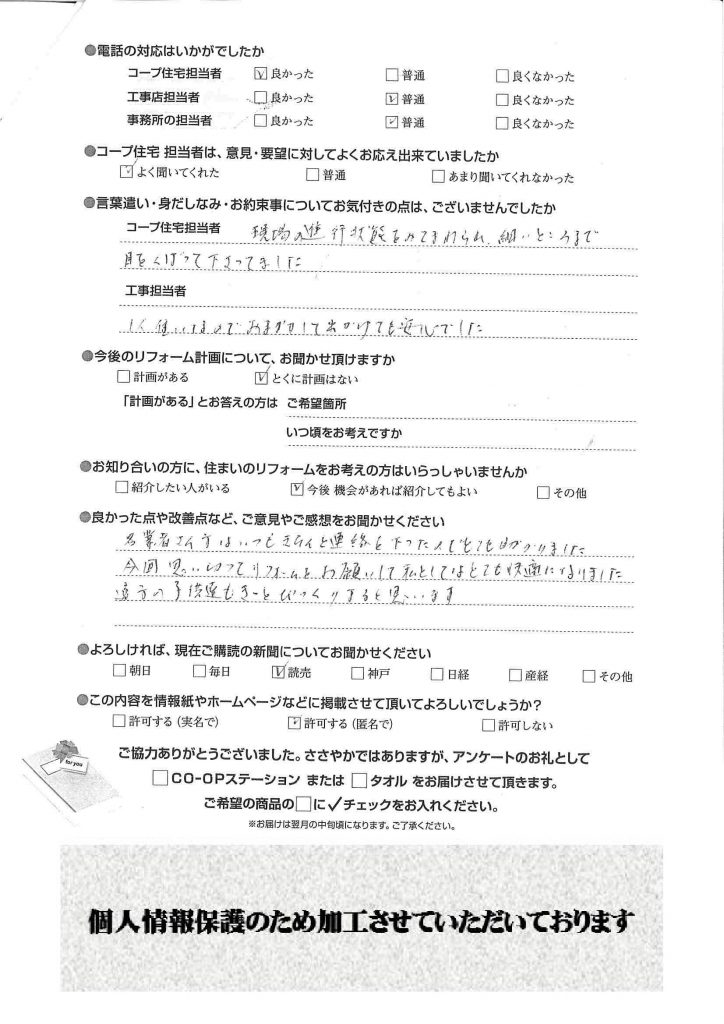 ●電話の対応はいかがでしたか
コープ住宅担当者 ☑良かった □普通 □良くなかった
工事店担当者 □良かった ☑普通 □良くなかった
事務所の担当者 □良かった ☑普通 □良くなかった
●コープ住宅 担当者は、意見・要望に対してよくお応え出来ていましたか
☑よく聞いてくれた □普通 □あまり聞いてくれなかった
●言葉遣い・身だしなみ・お約束事についてお気付きの点は、ございませんでしたか
コープ住宅担当者 現場の進行状態をみてまわられ、細いところまで
目をくばって下さってました
工事担当者
●今後のリフォーム計画について、お聞かせ頂けますか
□計画がある ☑とくに計画はない
「計画がある」とお答えの方は ご希望箇所
いつ頃をお考えですか
●お知り合いの方に、住まいのリフォームをお考えの方はいらっしゃいませんか
□紹介したい人がいる ☑今後 機会があれば紹介してもよい □その他
●良かった点や改善点など、ご意見やご感想をお聞かせください
各業者さん方はいつもきちんと連絡を下った
今回思い切ってリフォームをお願いして私としてはとても快適になりました
遠方の子供達もきっとびっくりすると思います
●よろしければ、現在ご購読の新聞についてお聞かせください
□朝日 □毎日 ☑読売 □神戸 □日経 □産経 □その他
●この内容を情報紙やホームページなどに掲載させて頂いてよろしいでしょうか?
□許可する(実名で) ☑許可する(匿名で) □許可しない
for you
ご協力ありがとうございました。ささやかではありますが、アンケートのお礼として
□CO-OPステーション または □タオル をお届けさせて頂きます。
ご希望の商品の□に✓チェックをお入れください。
※お届けは翌月の中旬頃になります。ご了承ください。
個人情報保護のため加工させていただいております